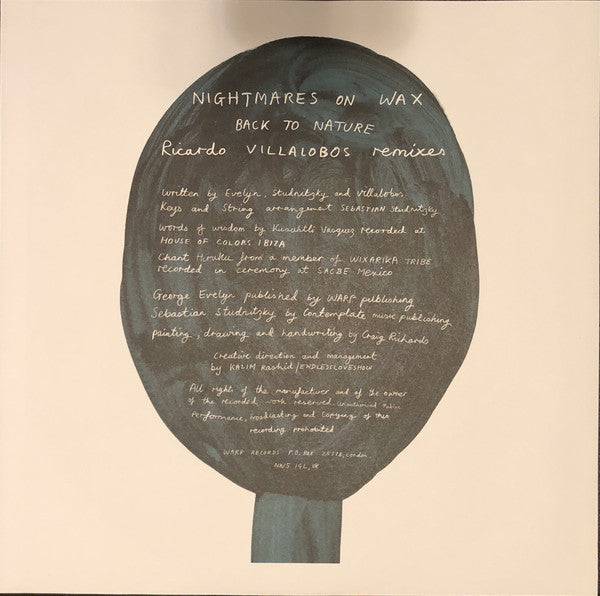 NIGHTMARES ON WAX
BACK TO NATURE
Ricardo VILLALOBOS remixes
Written by Evelyn, Studnitzky and Villalobos
Keys and String arrangement SEBASTIAN Studnitzky
Words of wisdom by Kuauhtli Vasquez recorded at
HOUSE OF COLORS IBIZA
Chant from a member of WIXARIKA TRIBE
recorded in ceremony at SACBE Mexico
George Evelyn published by WARP publishing
Sebastian Studnitzky by Contemplate music publishing
painting, drawing and handwriting by Craig Richards
Creative direction and management
by KALIM Rashid/ENDLESSLOVESHOW
All rights of the manufacturer and of the owner
of the recorded work reserved. Unauthorised Public
Performance, broadcasting and Copying of this
recording prohibited
WARP RECORDS P.O. BOX 25378, London.
NW5 1GL, UK